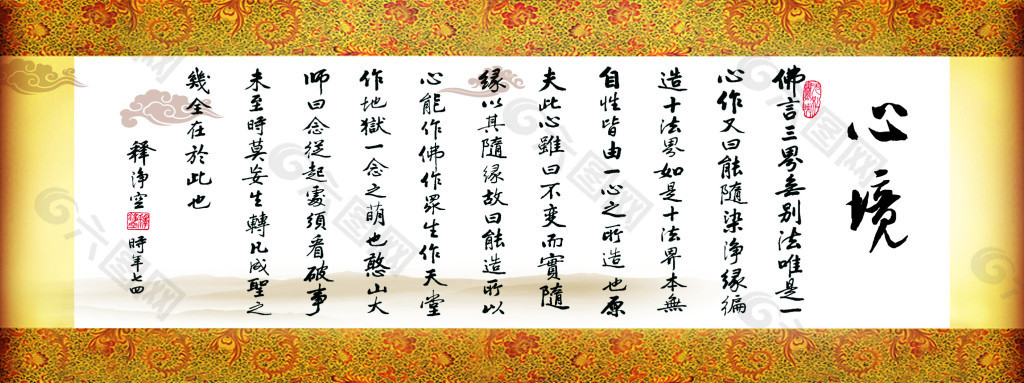 心境
佛言三界無別法唯是一
心作又曰能隨染淨緣徧
造十法界如是十法界本無
自性皆由一心之所造也原
夫此心雖曰不變而實隨
緣以其隨緣故曰能造所以
心能作佛作眾生作天堂
作地獄一念之萌也憨山大
師曰念從起處須看破事
未至時莫妄生轉凡成聖之
幾全在於此也
釋淨空
時年七四